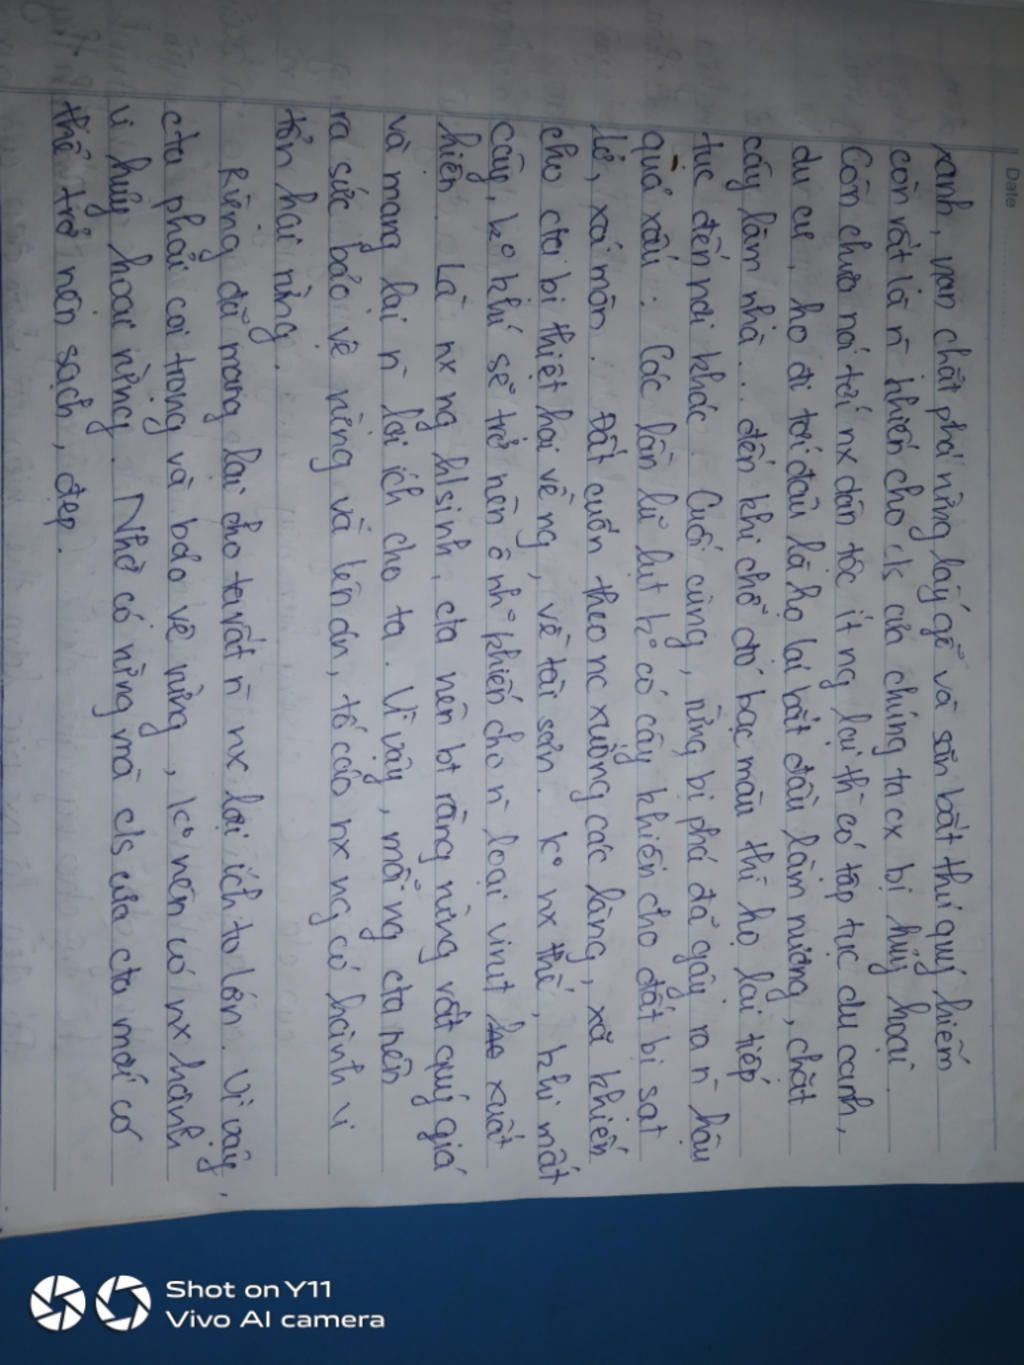 Date
xanh, nạn chặt phá rừng lấy gỗ và săn bắt thú quý hiếm
còn rất là n̄ khiến cho c/s của chúng ta cx bị hủy hoại.
Còn chưa nói tới nx dân tộc ít ng lại thì có tập tục du canh,
du cư, họ đi tới đâu là họ lại bắt đầu làm nương, chặt
cây làm nhà... đến khi chỗ đó bạc màu thì họ lại tiếp
tục đến nơi khác. Cuối cùng, rừng bị phá đã gây ra n̄ hậu
quả xấu: Các lần lũ lụt kº có cây khiến cho đất bị sạt
lở, xói mòn. Đất cuốn theo nc xuống các làng, xã khiến
cho cta bị thiệt hại về ng, về tài sản. Kº nx thế, khi mất
cây, kº khí sẽ trở nên ô nh° khiến cho n̄ loại virut xuất
hiện. Là nx ng h/sinh, cta nên bt rằng rừng rất quý giá
và mang lại n̄ lợi ích cho ta. Vì vậy, mỗi ng cta nên
ra sức bảo vệ rừng và lên án, tố cáo nx ng có hành vi
tổn hại rừng.
Rừng đã mang lại cho ta rất n̄ nx lợi ích to lớn. Vì vậy,
cta phải coi trọng và bảo vệ rừng, kº nên có nx hành
vi hủy hoại rừng. Nhờ có rừng mà c/s của cta mới có
thể trở nên sạch, đẹp.
Shot on Y11
Vivo AI camera